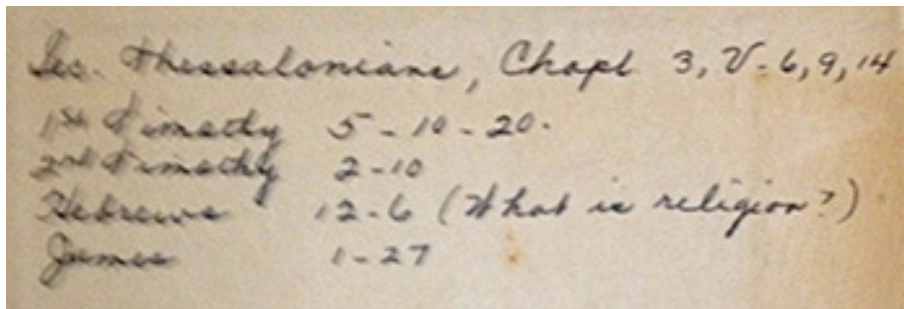 Sec. Thessalonians, Chapt 3, V-6,9,14
1st Timothy 5-10-20.
2nd Timothy 2-10
Hebrews 12-6 (What is religion?)
James 1-27